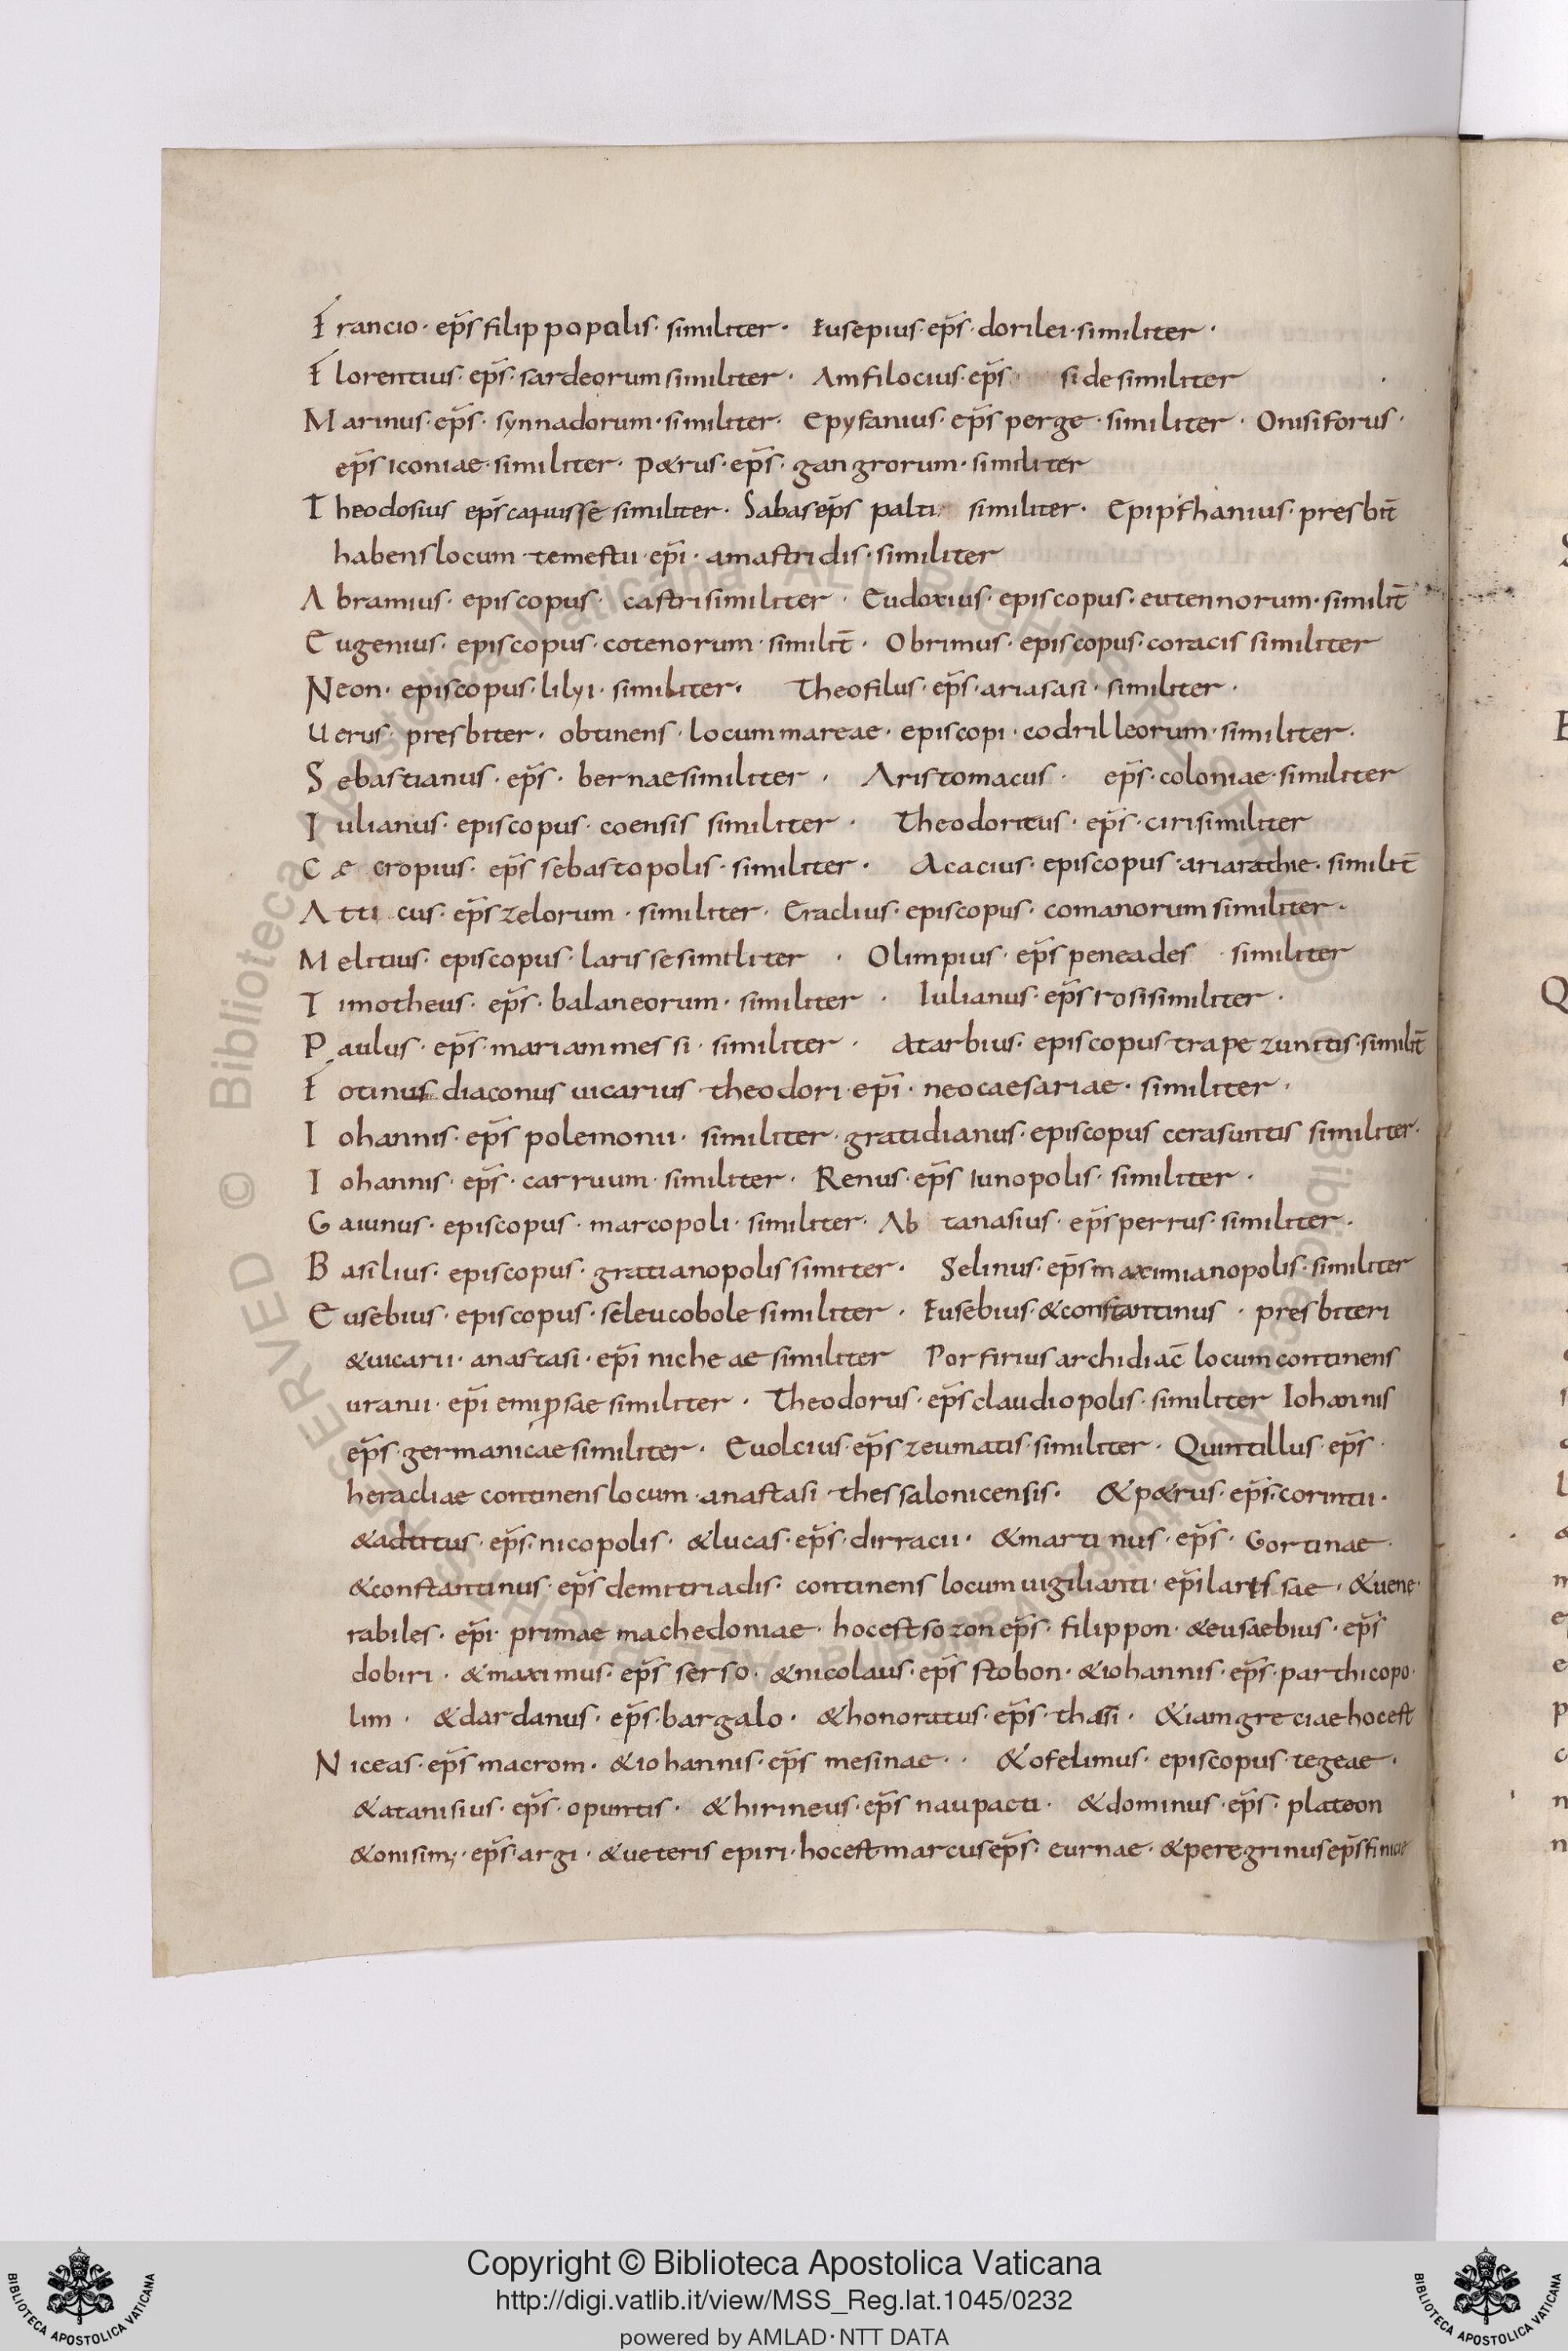 Francio· ep̅s filippopolis· similiter· Eusepius· ep̅s· dorilei· similiter·
Florentius· ep̅s· sardeorum similiter· Amfilocius· ep̅s· side similiter
Marinus· ep̅s· synnadorum· similiter· Epyfanius· ep̅s perge· similiter· Onisiforus·
ep̅s iconiae· similiter· Petrus· ep̅s· gangrorum· similiter
Theodosius ep̅s similiter· Sabas ep̅s palti similiter· Epipfhanius· presbit̅
habens locum temestii· ep̅i· amastridis· similiter
Abramius· episcopus· castri similiter· Eudoxius· episcopus· eutennorum· similit̅
Eugenius· episcopus· cotenorum· similit̅· Obrimus· episcopus· coracis similiter
Neon· episcopus· lilyi· similiter· Theofilus· ep̅s· ariasasi· similiter·
Uerus· presbiter· obtinens· locum mareae· episcopi· codrilleorum· similiter·
Sebastianus· ep̅s· bernae similiter· Aristomacus· ep̅s· coloniae· similiter
Iulianus· episcopus· coensis similiter· Theodoritus· ep̅s· ciri similiter
Cecropius· ep̅s sebastopolis· similiter· Acacius· episcopus· ariarathie· similit̅
Atticus· ep̅s zelorum· similiter· Eraclius· episcopus· comanorum similiter·
Melitius· episcopus· larisse similiter· Olimpius· ep̅s peneades· similiter
Timotheus· ep̅s· balaneorum· similiter· Iulianus· ep̅s rosi similiter·
Paulus· ep̅s· mariammessi· similiter· Atarbius· episcopus trapezuntis· similit̅
Fotinus diaconus uicarius theodori· ep̅i· neocaesariae· similiter·
Iohannis· ep̅s polemonii· similiter· gratidianus· episcopus cerasuntis similiter·
Iohannis· ep̅s· carruum· similiter· Renus· ep̅s iunopolis· similiter·
Gaiunus· episcopus· marcopoli· similiter· Ab tanasius· ep̅s perrus· similiter·
Basilius· episcopus· gratianopolis similter· Selinus· ep̅s maximianopolis· similiter
Eusebius· episcopus· seleucobole similiter· Eusebius· & constantinus· presbiteri
& uicarii· anastasi· ep̅i nicheae similiter Porfirius archidiac̅ locum continens
uranii· ep̅i emipsae similiter· Theodorus· ep̅s claudiopolis· similiter Iohannis
ep̅s· germanicae similiter· Euolcius· ep̅s zeumatis· similiter· Quintillus· ep̅s·
heracliae continens locum· anastasi· thessalonicensis· & petrus· ep̅s· corintii·
& adtitus· ep̅s· nicopolis· & lucas· ep̅s· dirracii· & martinus· ep̅s· Gortinae·
& constantinus· ep̅s demitriadis· continens locum uigilianti· ep̅i larissae· & uene
rabiles· ep̅i· primae machedoniae· hoc est sozon ep̅s· filippon· & eusaebius· ep̅s
dobiri· & maximus· ep̅s serso· & nicolaus· ep̅s stobon· & iohannis· ep̅s· parthicopo
lim· & dardanus· ep̅s· bargalo· & honoratus· ep̅s· thasi· & iam greciae hoc est
Niceas· ep̅s macrom· & iohannis· ep̅s mesinae· & ofelimus· episcopus· tegeae·
& atanisius· ep̅s· opuntis· & hirineus· ep̅s naupacti· & dominus· ep̅s· plateon
& onisim;· ep̅s· argi· & ueteris epiri· hoc est marcus ep̅s· eurnae· & peregrinus ep̅s finicie
Copyright © Biblioteca Apostolica Vaticana
http://digi.vatlib.it/view/MSS_Reg.lat.1045/0232
powered by AMLAD·NTT DATA